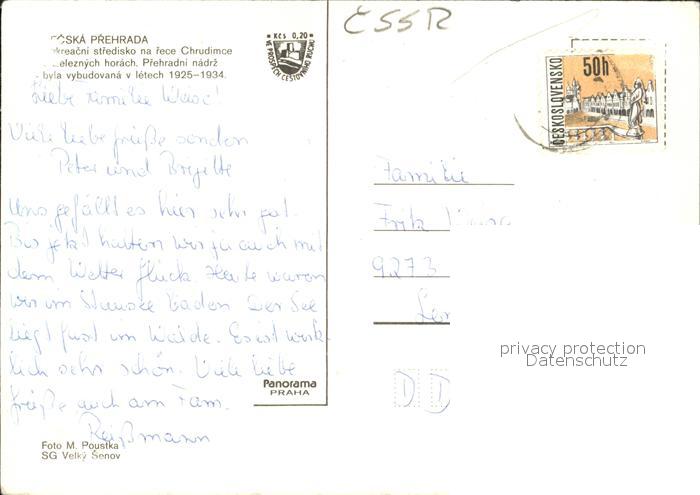 ČSKÁ PŘEHRADA
kreační středisko na řece Chrudimce
elezných horách. Přehradní nádrž
byla vybudovaná v létech 1925–1934.
Kčs 0,20
VE PROSPĚCH CESTOVNÍHO RUCHU
ČSSR
50h
ČESKOSLOVENSKO
Liebe Familie
Viele liebe Grüße senden
Peter und Brigitte
Uns gefällt es hier sehr gut.
Bis jetzt hatten wir ja auch mit
dem Wetter Glück. Heute waren
wir im Stausee baden. Der See
liegt fast im Walde. Es ist wirk-
lich sehr schön. Viele liebe
Grüße auch an Fam.
Reißmann
Familie
Fritz
9273
DD
Panorama
PRAHA
Foto M. Poustka
SG Velký Šenov
privacy protection
Datenschutz